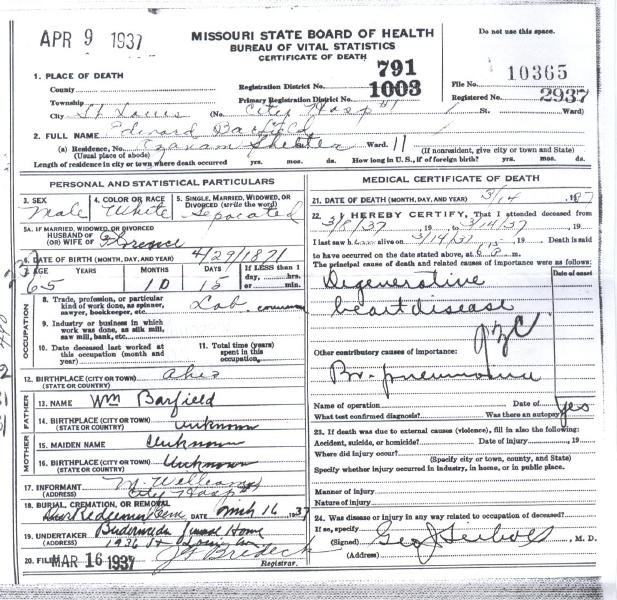 APR 9 1937
MISSOURI STATE BOARD OF HEALTH
BUREAU OF VITAL STATISTICS
CERTIFICATE OF DEATH
Do not use this space.
1. PLACE OF DEATH
County
Registration District No. 791
File No. 10365
Township
Primary Registration District No. 1003
Registered No. 2937
City St Louis (No. City Hosp #1 St. Ward)
2. FULL NAME Edward Barfield
(a) Residence, No. Ozanam Shelter Ward. 11
(Usual place of abode) (If nonresident, give city or town and State)
Length of residence in city or town where death occurred yrs. mos. ds. How long in U. S., if of foreign birth? yrs. mos. ds.
PERSONAL AND STATISTICAL PARTICULARS
3. SEX Male
4. COLOR OR RACE White
5. SINGLE, MARRIED, WIDOWED, OR DIVORCED (write the word) Separated
5A. IF MARRIED, WIDOWED, OR DIVORCED
HUSBAND OF
(OR) WIFE OF Florence
6. DATE OF BIRTH (MONTH, DAY, AND YEAR) 4/29/1871
7. AGE YEARS MONTHS DAYS If LESS than 1 day, hrs. or min.
65 10 15
OCCUPATION
8. Trade, profession, or particular kind of work done, as spinner, sawyer, bookkeeper, etc. Lab.
9. Industry or business in which work was done, as silk mill, saw mill, bank, etc.
10. Date deceased last worked at this occupation (month and year)
11. Total time (years) spent in this occupation
12. BIRTHPLACE (CITY OR TOWN)
(STATE OR COUNTRY)
FATHER
13. NAME Wm Barfield
14. BIRTHPLACE (CITY OR TOWN) Unknown
(STATE OR COUNTRY)
MOTHER
15. MAIDEN NAME Unknown
16. BIRTHPLACE (CITY OR TOWN) Unknown
(STATE OR COUNTRY)
17. INFORMANT M. Williams
(ADDRESS) City Hosp #1
18. BURIAL, CREMATION, OR REMOVAL
DATE Mch 16 1937
19. UNDERTAKER Funeral Home
(ADDRESS) 1936 St Louis Av
20. FILED MAR 16 1937 J. F. Bredeck
Registrar.
MEDICAL CERTIFICATE OF DEATH
21. DATE OF DEATH (MONTH, DAY, AND YEAR) 3/14 1937
22. I HEREBY CERTIFY, That I attended deceased from
3/8/37, 19 to 3/14/37, 19
I last saw h alive on 3/14/37, 19 Death is said
to have occurred on the date stated above, at m.
The principal cause of death and related causes of importance were as follows:
Date of onset
Degenerative
heart disease
Other contributory causes of importance:
Br. pneumonia
Name of operation Date of
What test confirmed diagnosis? Was there an autopsy? Yes
23. If death was due to external causes (violence), fill in also the following:
Accident, suicide, or homicide? Date of injury, 19
Where did injury occur?
(Specify city or town, county, and State)
Specify whether injury occurred in industry, in home, or in public place.
Manner of injury
Nature of injury
24. Was disease or injury in any way related to occupation of deceased?
If so, specify
(Signed) M. D.
(Address)